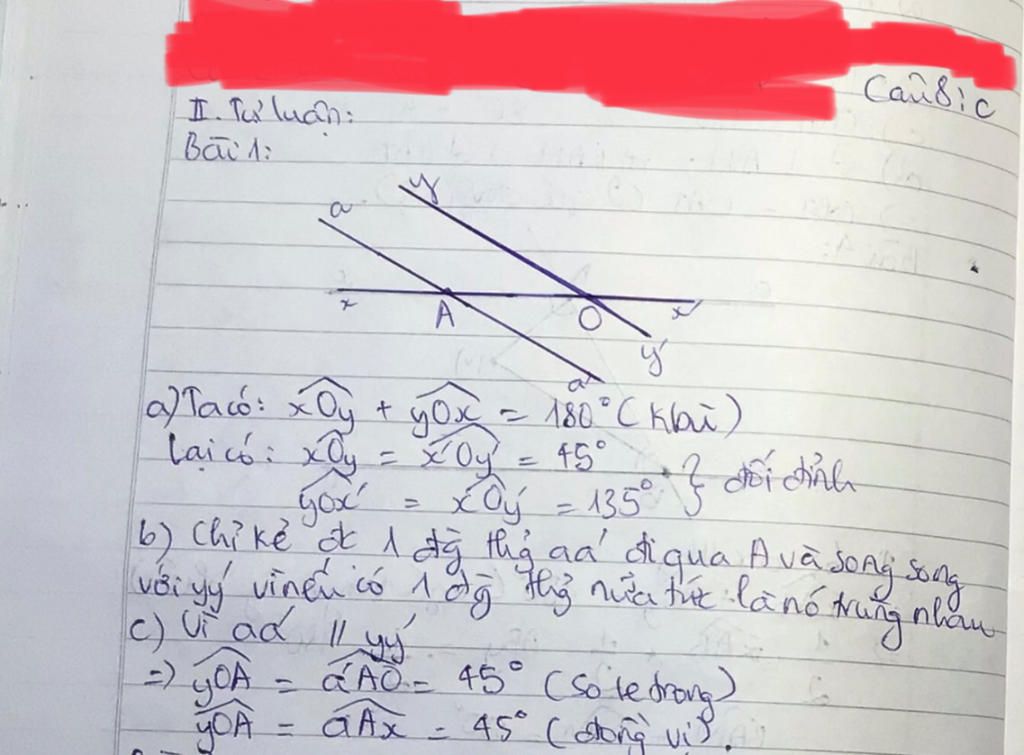 Câu 8: C
II. Tự luận:
Bài 1:
y
a
x
A
O
x'
y'
a'
a) Ta có: xOy + yOx = 180° (kbù)
Lại có: xOy = x'Oy' = 45°
yOx' = xOy' = 135° } đối đỉnh
b) Chỉ kẻ đc 1 đg thg aa' đi qua A và song song
với yy' vì nếu có 1 đg thg nữa tức là nó trùng nhau
c) Vì aa' // yy'
=> yOA = a'AO = 45° (so le trong)
yOA = aAx = 45° (đồng vị).